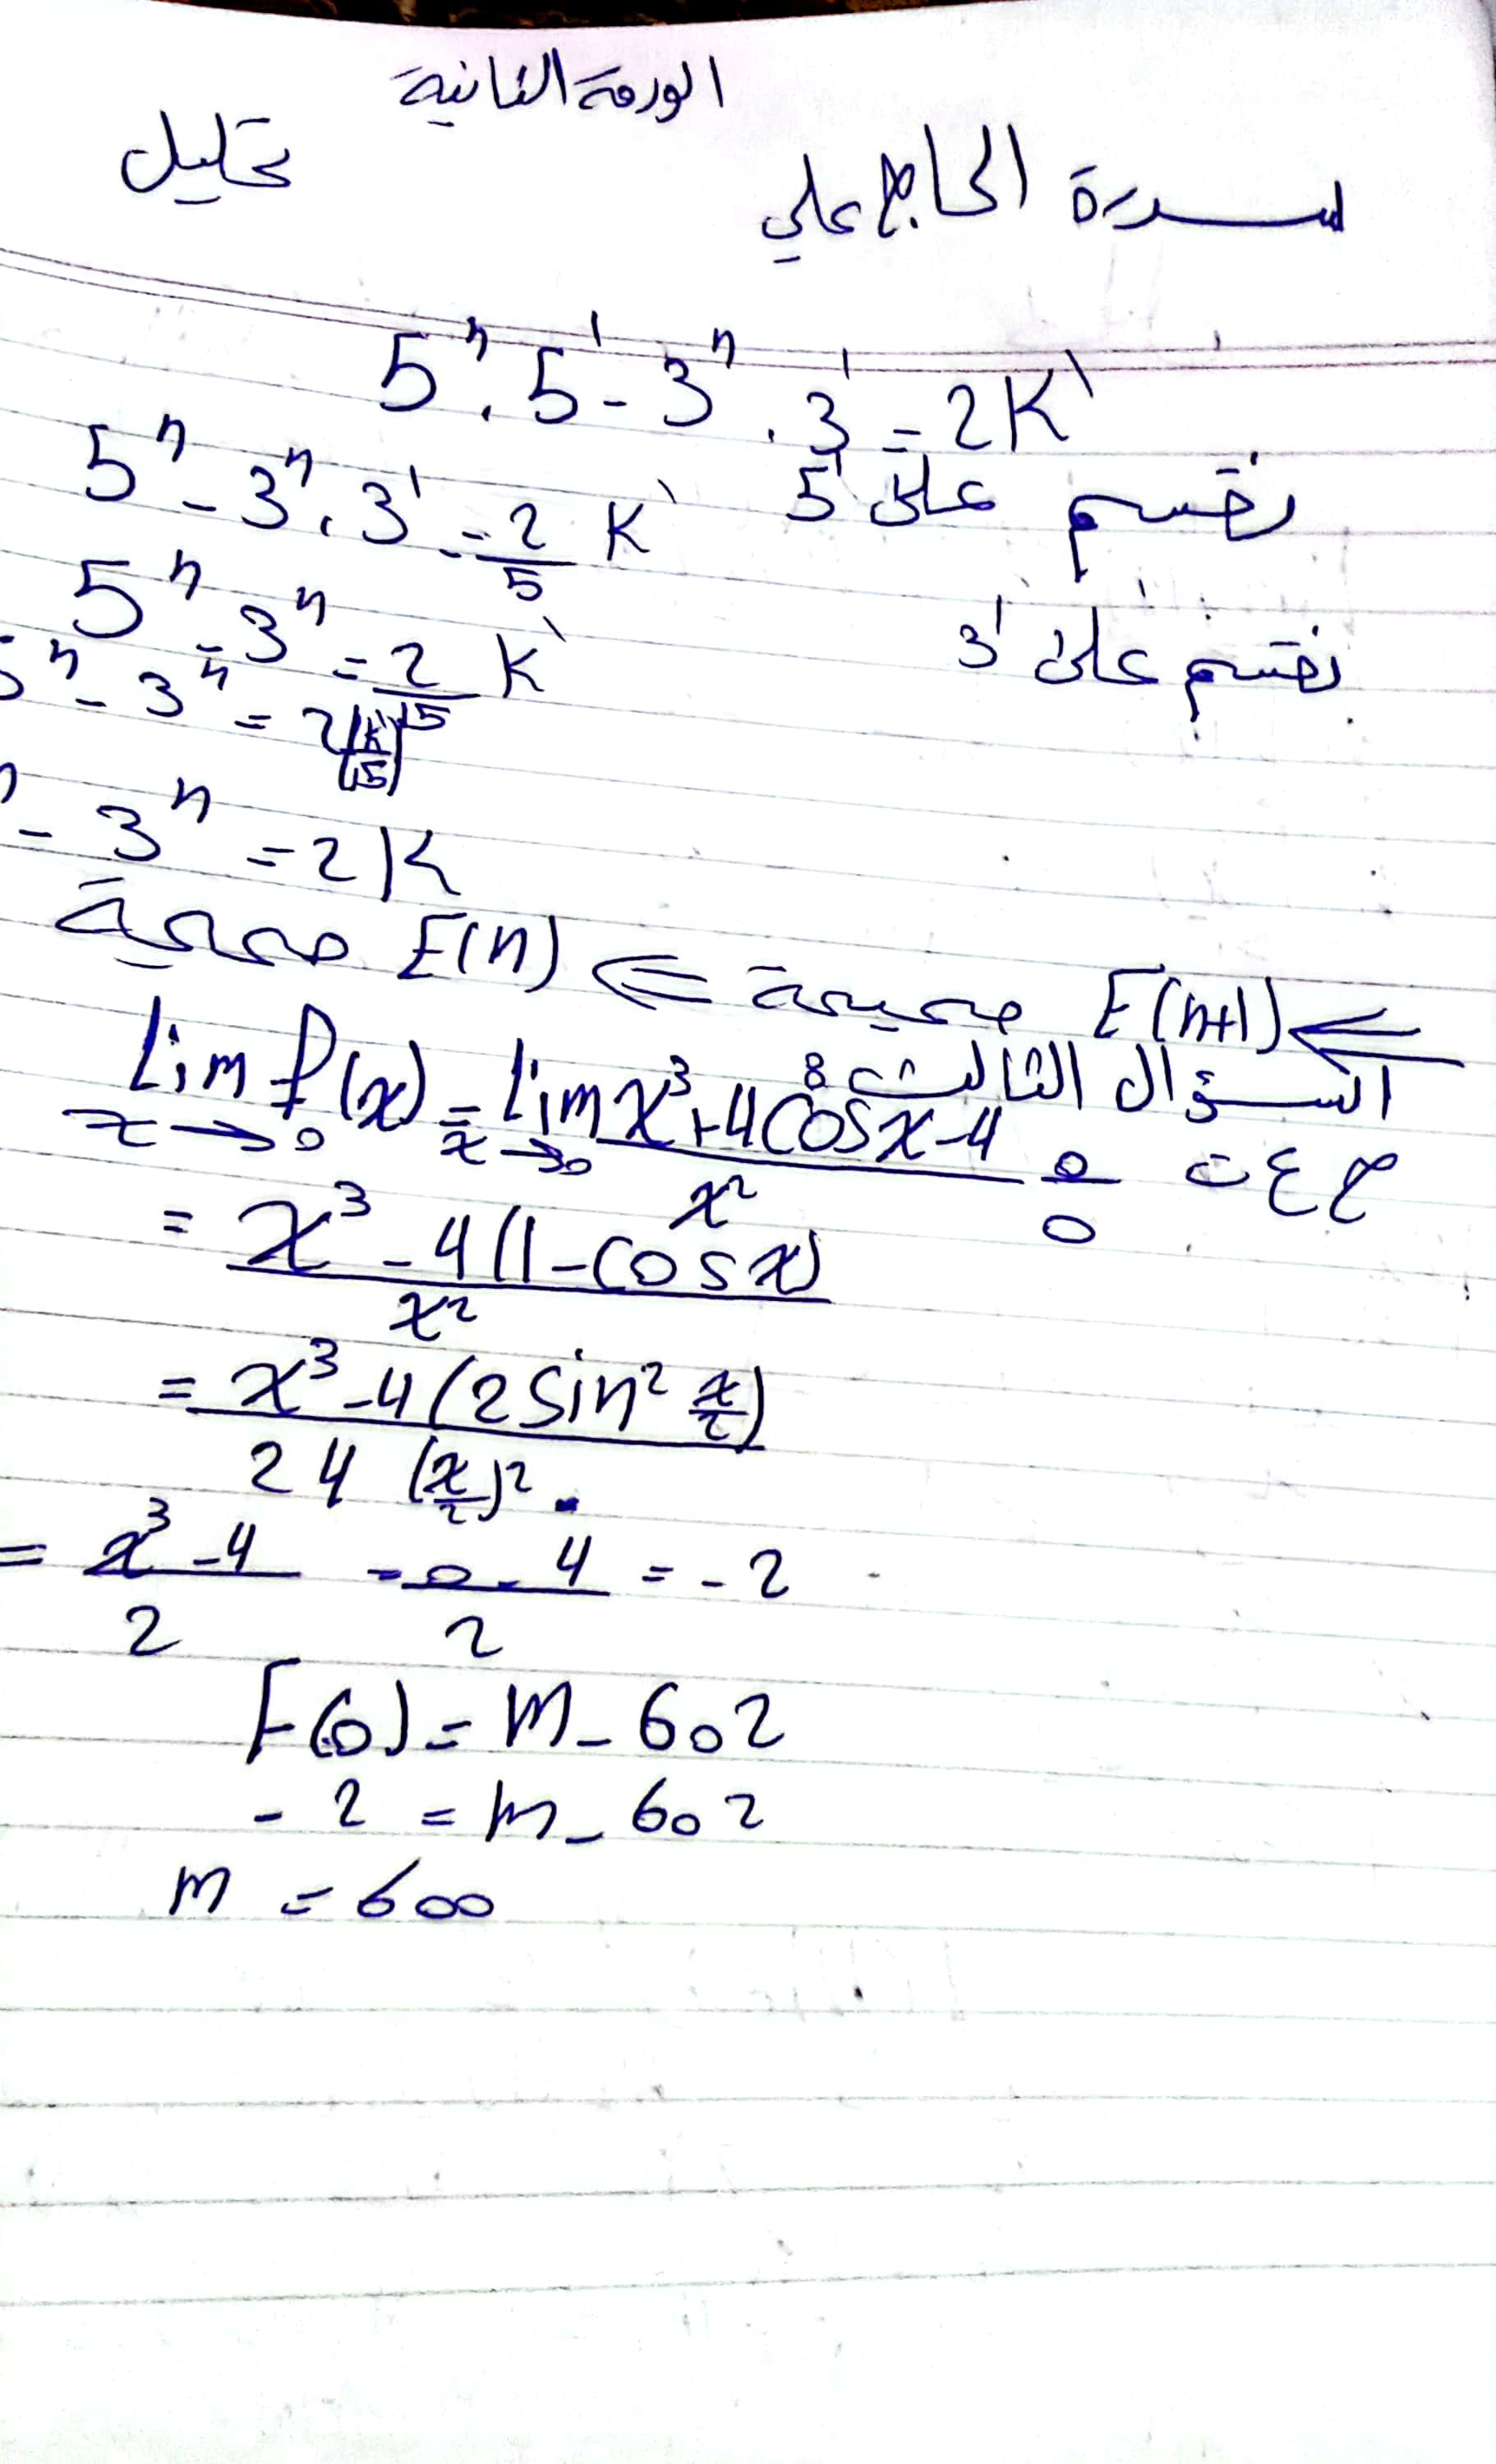 الورقة الثانية
تحليل
سدرة الحاج علي
5^n . 5^1 - 3^n . 3^1 = 2K`
نقسم على 5^1
5^n - 3^n . 3^1 = 2/5 K`
نقسم على 3^1
5^n - 3^n = 2/15 K`
5^n - 3^n = 2(K`/15)
- 3^n = 2K
<= E(n+1) صحيحة <= E(n) صحيحة
السؤال الثالث:
lim x→0 f(x) = lim x→0 (x^3 + 4cosx - 4)/x^2 0/0 ح ع ت
= (x^3 - 4(1 - cosx))/x^2
= (x^3 - 4(2sin^2 x/2))/(24 (x/2)^2)
= (x^3 - 4)/2 = (0 - 4)/2 = -2
F(0) = m - 602
- 2 = m - 602
m = 600